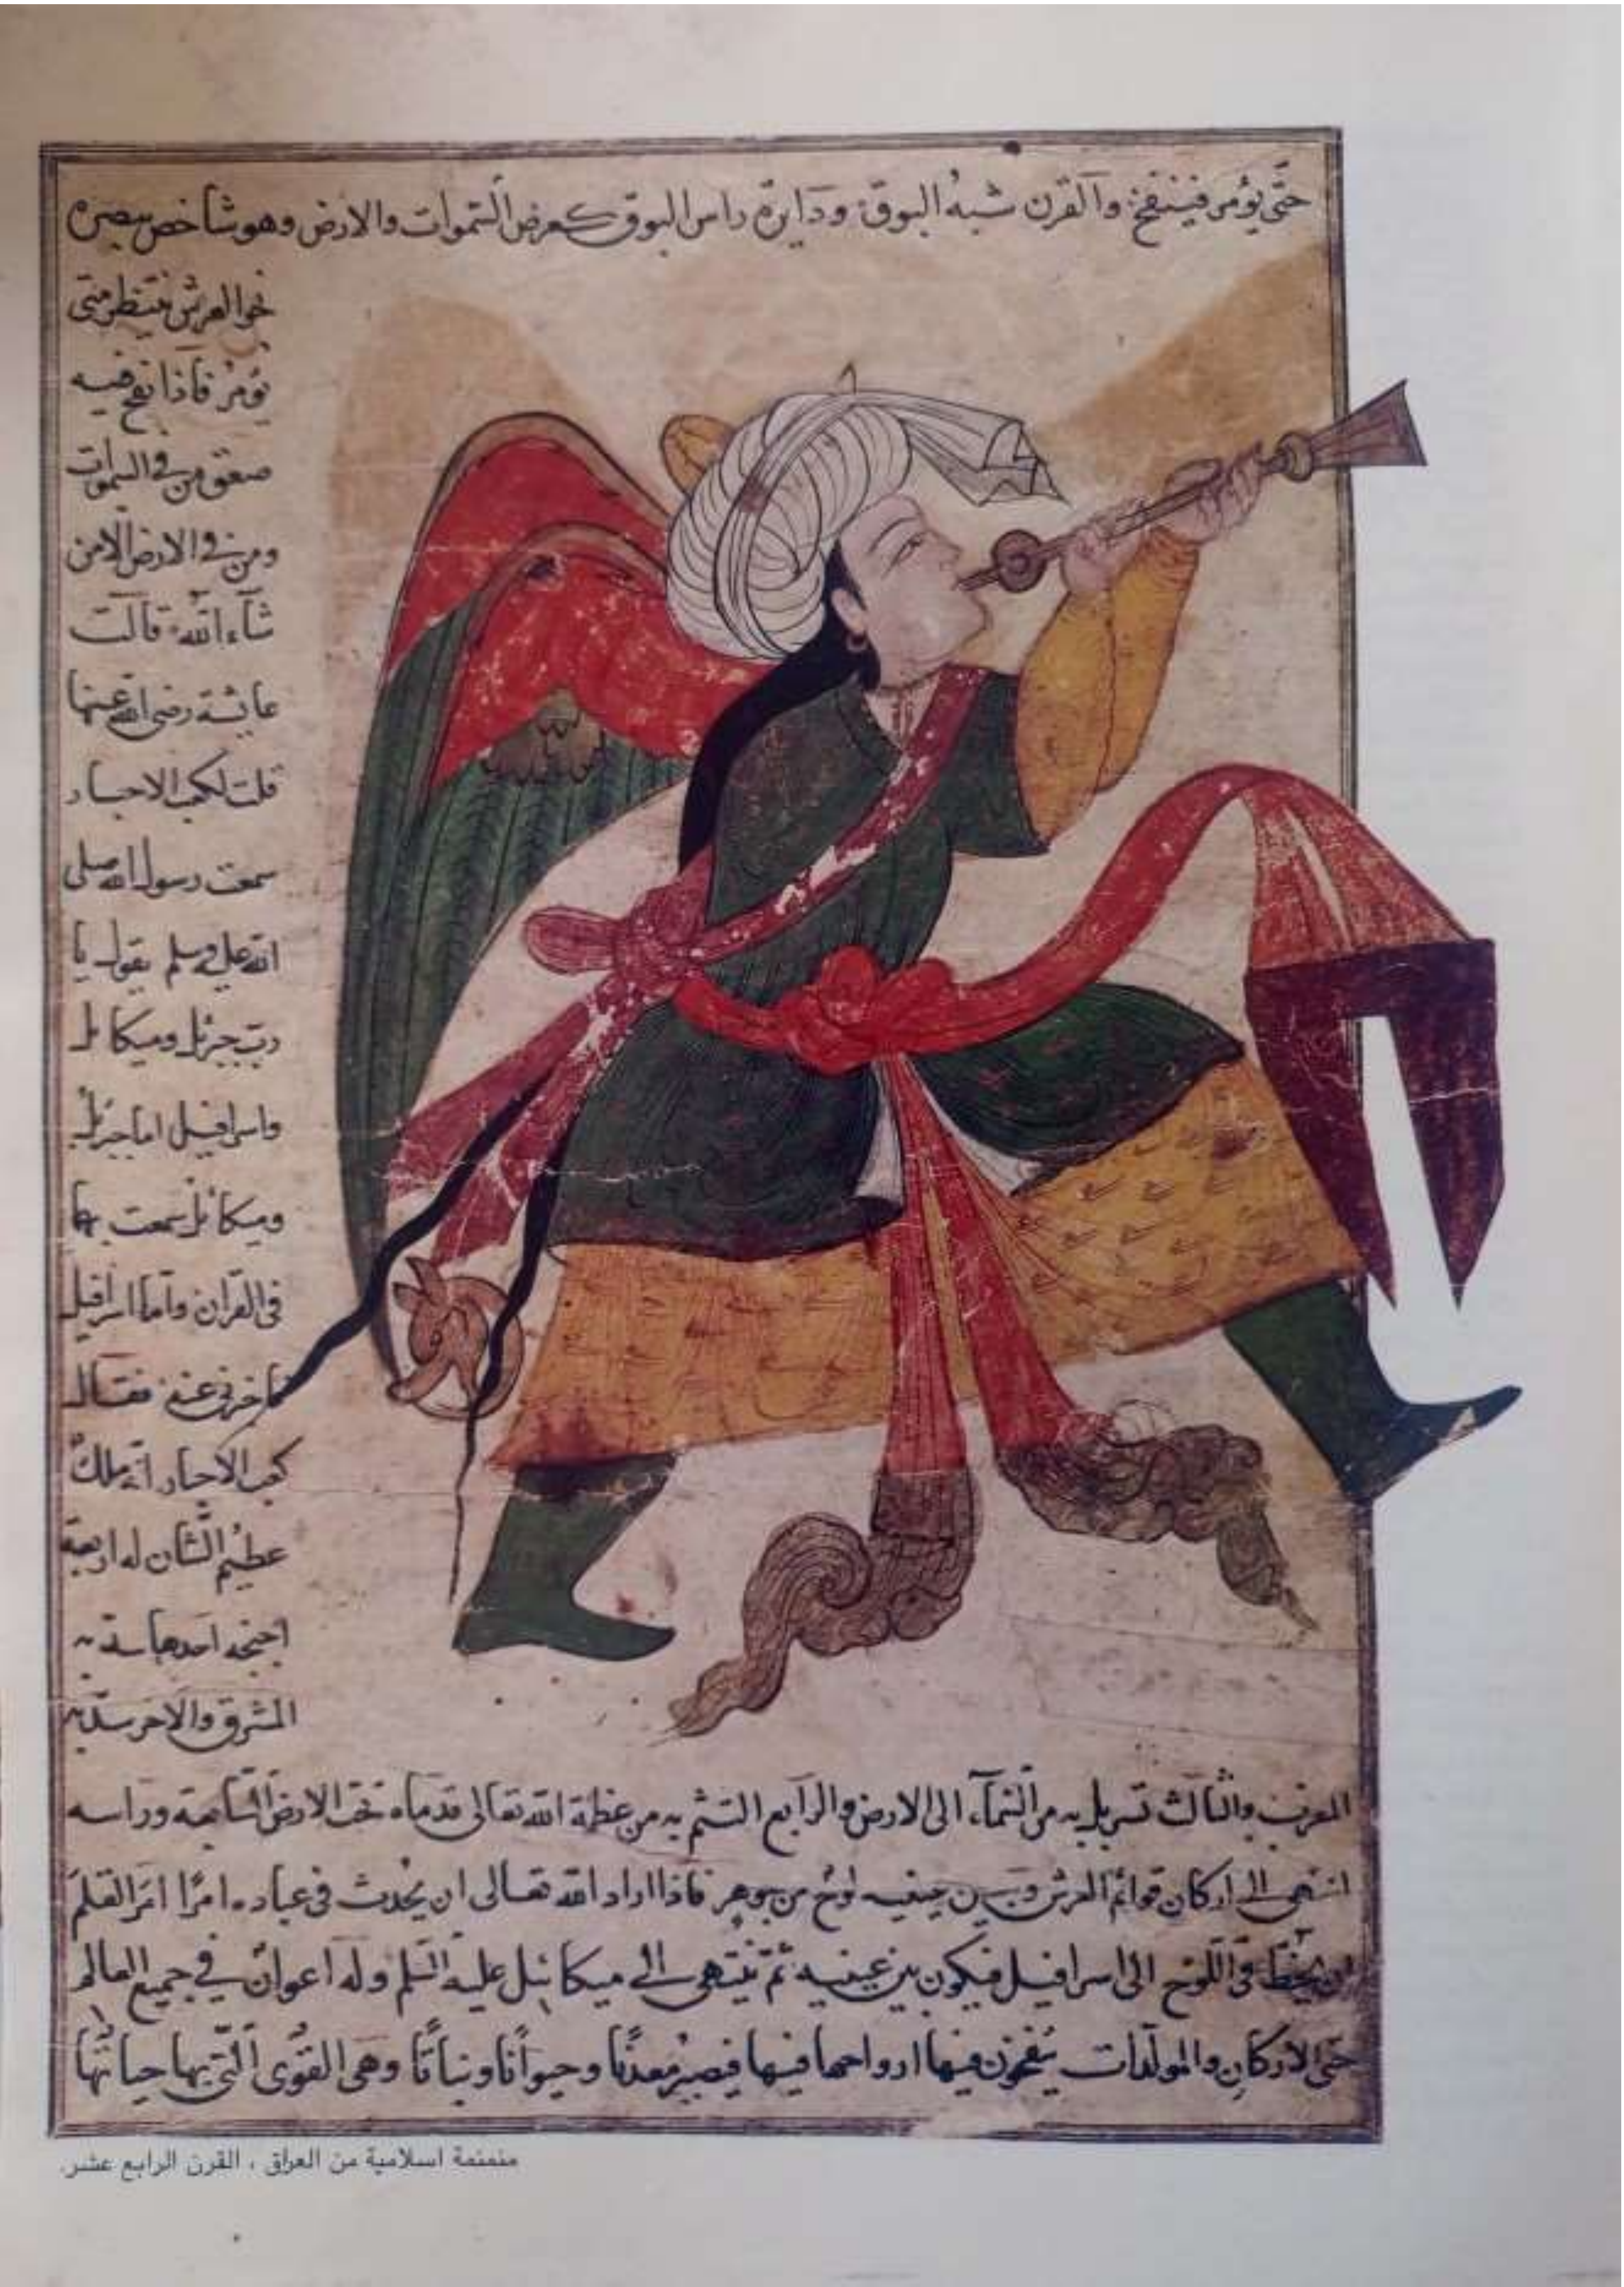 حتّى يؤمر فينفخ والقرن شبهُ البوق ودايرة راس البوق كعرض السّموات والارض وهو شاخص ببصره
نحو العرش ينتظر متى
يؤمرُ فاذا نفخ فيه
صعق من في السموات
ومن في الارض الّا من
شآء اللّه قالت
عايشة رضى اللّه عنها
قلت لكعب الاحبار
سمعت رسول الله صلى
الله عليه وسلم يقول يا
ربّ جبرئيل وميكائيل
واسرافيل اما جبرئيل
وميكائيل سمعت بهما
فى القرآن وامّا اسرافيل
فاخبرنى عنه فقال
كعب الاحبار انّه ملكٌ
عظيم الشّان له اربعة
اجنحة احدها سدّ به
المشرق والاخر سدّ به
المغرب والثالث تسربل به من السّمآء الى الارض والرّابع التثم به من عظمة اللّه تعالى قدماه تحت الارض السّابعة وراسه
انتهى الى اركان قوائم العرش وبين عينيه لوح من جوهر فاذا اراد اللّه تعالى ان يُحدث فى عباده امرًا امَرَ القلمَ
ان يخطّ فى اللّوح الى اسرافيل فيكون بين عينيه ثمّ ينتهى الى ميكائيل عليه السّلم وله اعوانٌ في جميع العالم
حتى الاركان والمولّدات ينفخون فيها ارواحها فيها فيصيرُ معدنًا وحيوانًا ونباتًا وهى القُوى الّتى بها حياتُها
منمنمة اسلامية من العراق ، القرن الرابع عشر.